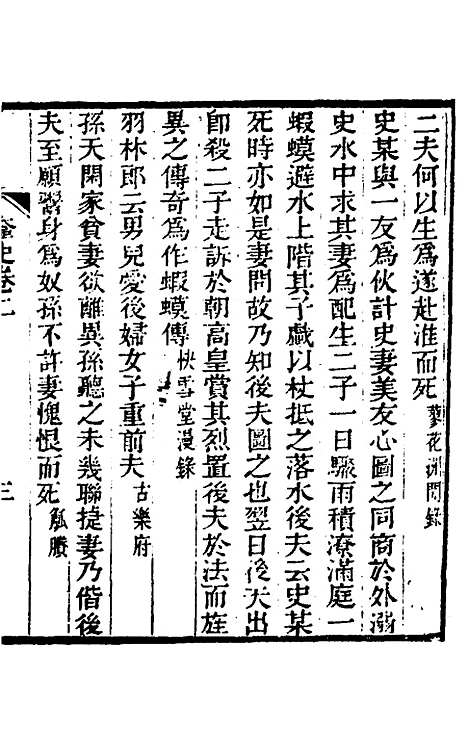 二夫何以生爲遂赴淮而死蓼花洲閒錄
史某與一友爲伙計史妻美友心圖之同商於外溺
史水中求其妻爲配生二子一日驟雨積潦滿庭一
蝦蟆避水上階其子戲以杖抵之落水後夫云史某
死時亦如是妻問故乃知後夫圖之也翌日後夫出
卽殺二子走訴於朝高皇賞其烈置後夫於法而旌
異之傳奇爲作蝦蟆傳快雪堂漫錄
羽林郎云男兒愛後婦女子重前夫古樂府
孫天閑家貧妻欲離異孫聽之未幾聯捷妻乃偕後
夫至願鬻身爲奴孫不許妻愧恨而死觚賸
奩史卷二
三